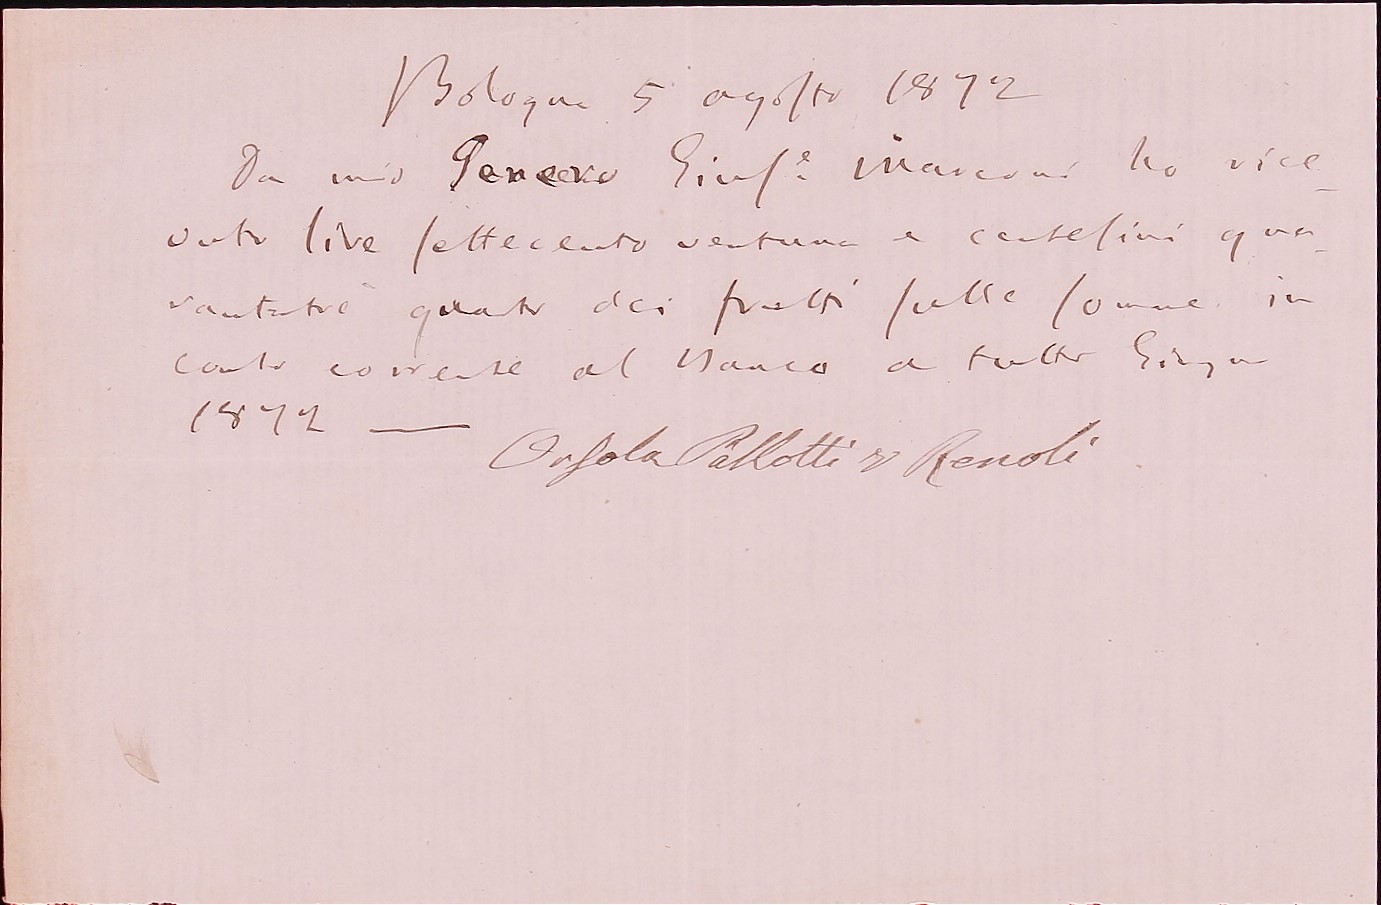 Bologna 5 agosto 1872
Da mio Genero Giusᵉ Marconi ho rice_
vuto lire settecento ventuna e centesimi qua_
rantatrè quarto dei frutti sulle somme in
conto corrente al Banco a tutto Giugno
1872 —
Orsola Pallotti v Renoli